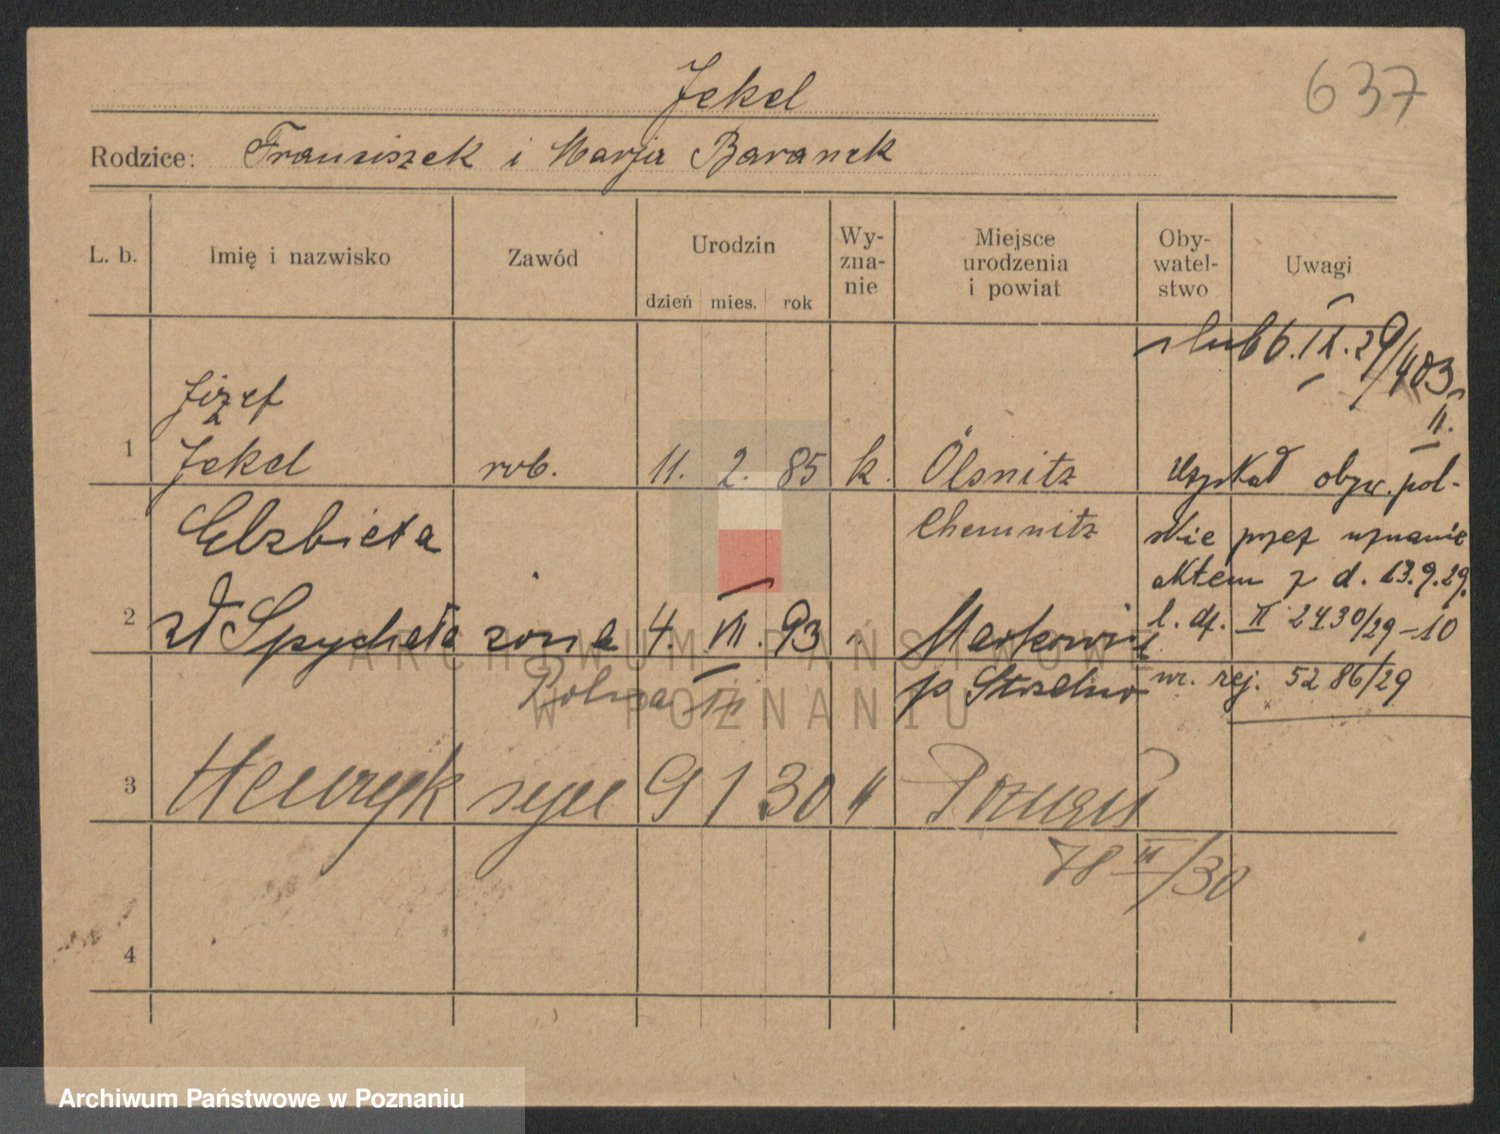 637
Jekel
Rodzice: Franciszek i Marja Baranek
L. b.
Imię i nazwisko
Zawód
Urodzin
dzień mies. rok
Wy-
zna-
nie
Miejsce
urodzenia
i powiat
Oby-
watel-
stwo
Uwagi
ślub 6. II. 29/403
II.
Józef
1 Jekel rob. 11. 2. 85 k. Ölsnitz
Chemnitz
uzyskał obyw. pol-
skie przez uznanie
aktem z d. 13.9.29.
l. dz. II 2430/29-10
nr. rej. 5286/29
Elzbieta
2 Spychała zona 4. VII. 93 Markowice
p Strzelno
3 Henryk syn 9 1 30 " Poznań
78 III/30
4
ARCHIWUM PAŃSTWOWE
W POZNANIU
Archiwum Państwowe w Poznaniu